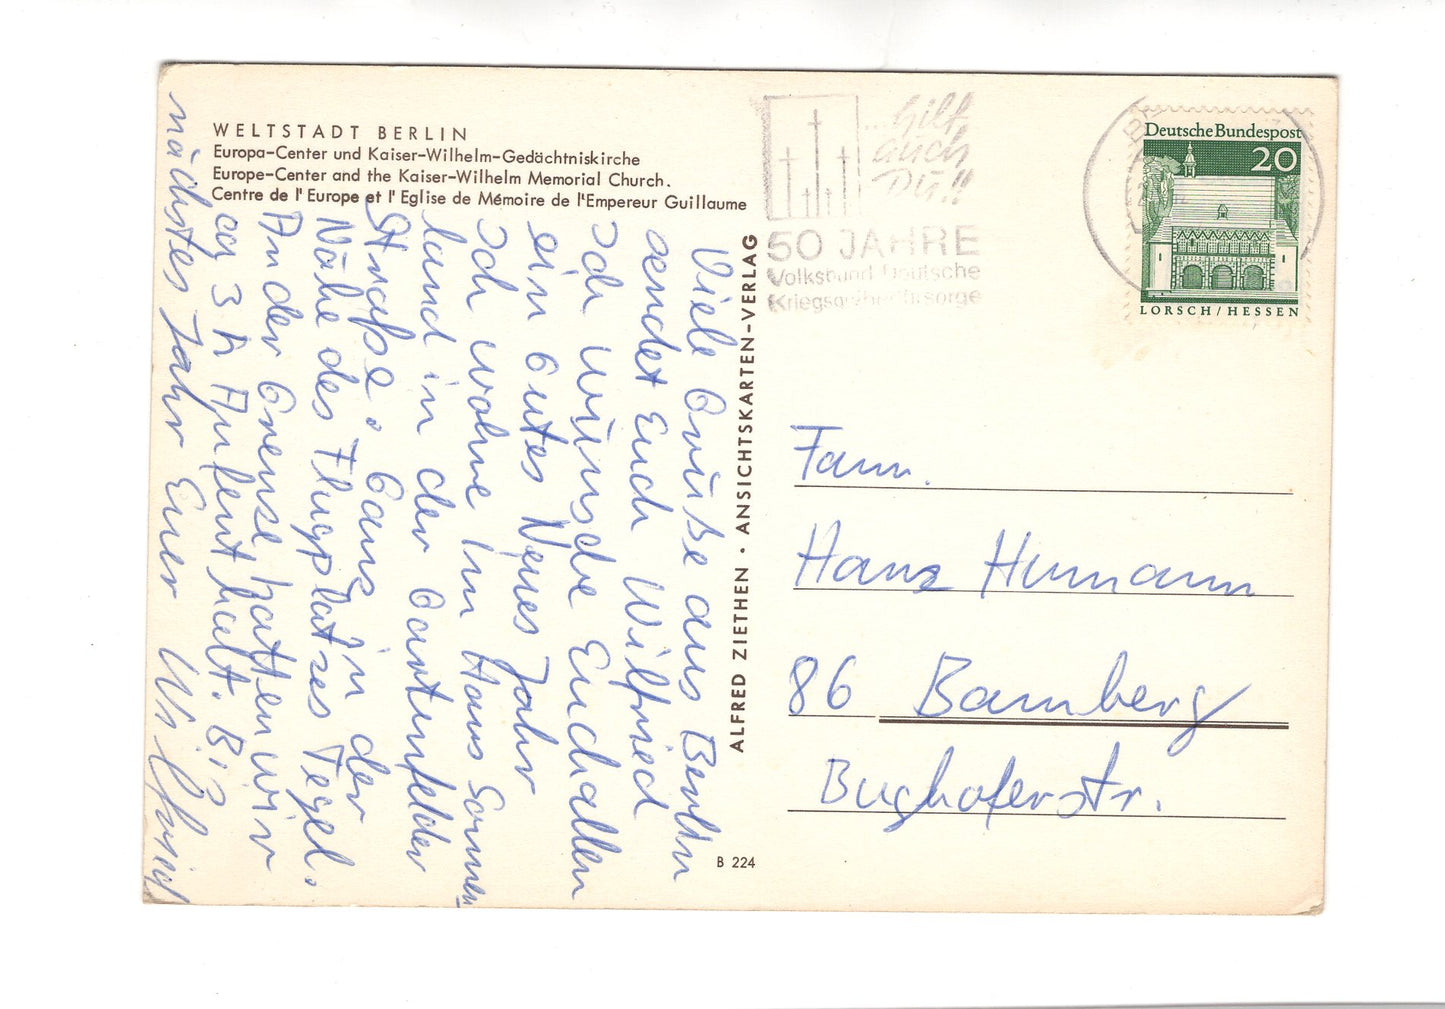 WELTSTADT BERLIN
Europa-Center und Kaiser-Wilhelm-Gedächtniskirche
Europe-Center and the Kaiser-Wilhelm Memorial Church.
Centre de l'Europe et l'Eglise de Mémoire de l'Empereur Guillaume
Viele Grüße aus Berlin
sendet Euch Wilfried
Ich wünsche Euch allen
ein Gutes Neues Jahr
Ich wohne im Haus Sonnen
land in der Gartenfelder
Straße. Ganz in der
Nähe des Flugplatzes Tegel.
An der Grenze hatten wir
ca 3 h Aufenthalt. Bis
nächstes Jahr Euer Wilfried
ALFRED ZIETHEN · ANSICHTSKARTEN-VERLAG
B 224
...hilf
auch
Du!!
50 JAHRE
Volksbund Deutsche
Kriegsgräberfürsorge
Deutsche Bundespost
20
LORSCH/HESSEN
Fam.
Hans Humann
86 Bamberg
Bughoferstr.